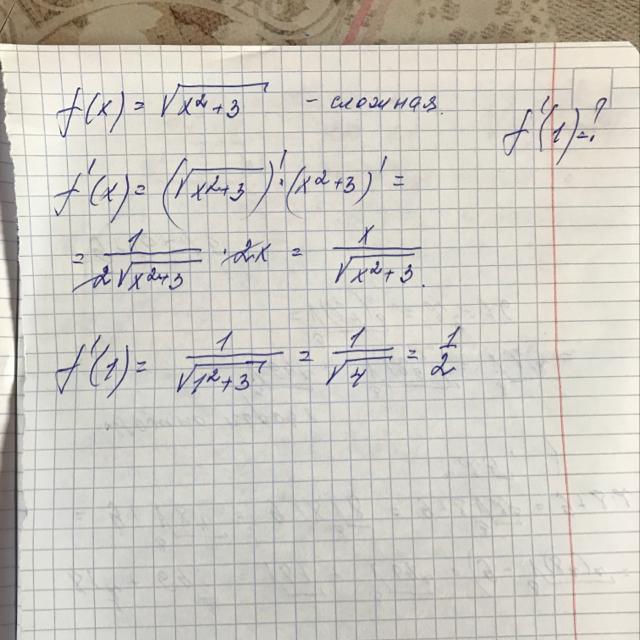 f(x) = √(x²+3) - сложная.
f'(1) - ?
f'(x) = (√(x²+3))' · (x²+3)' =
= 1/(2√(x²+3)) · 2x = x/√(x²+3).
f'(1) = 1/√(1²+3) = 1/√4 = 1/2